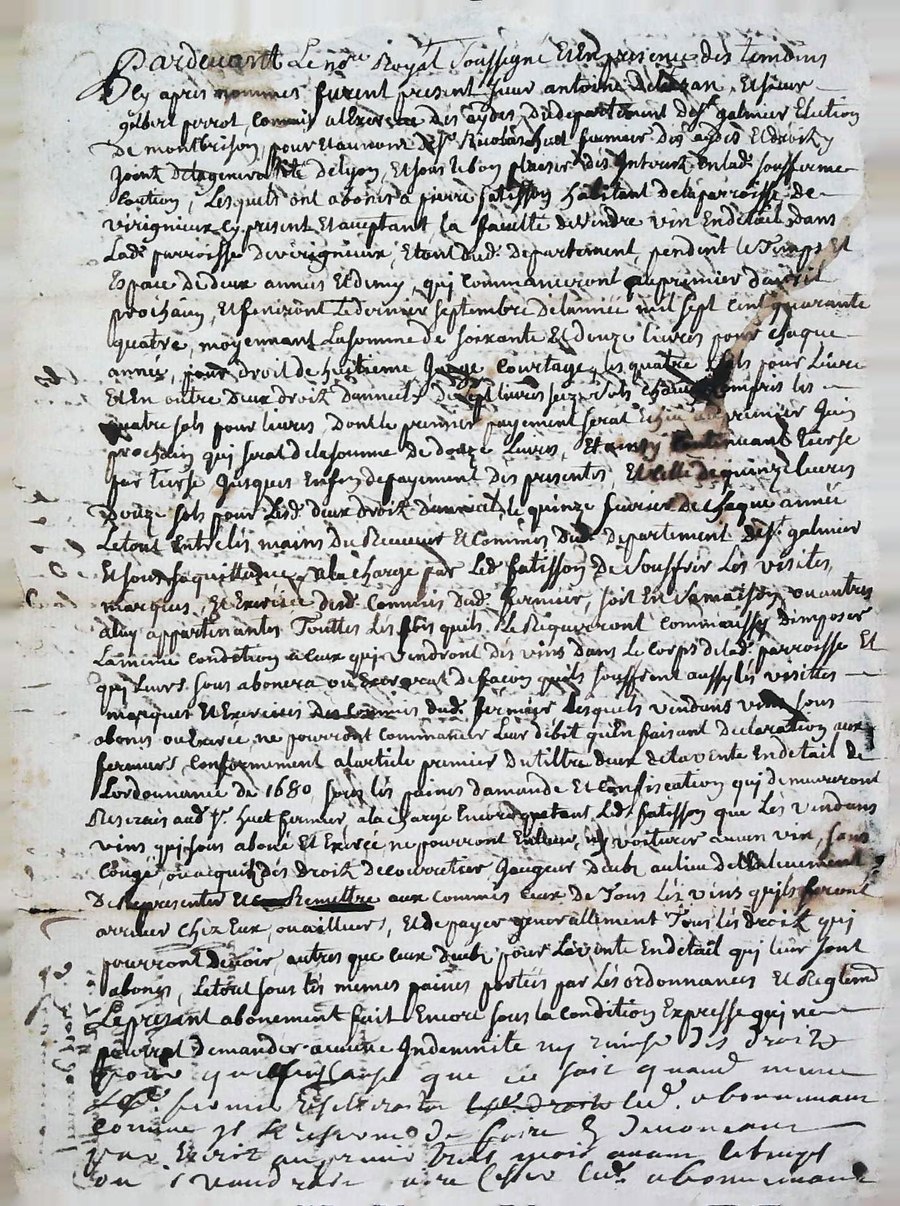 Pardevant Le no.re Royal Soussigné Et En presence des temoins
Cy apres nommes furent present sieur antoine Et sieur
gilbert perrot, Commis a l'Exercice des aydes, du departement de s.t galmier Election
De montbrison, pour Et au nom de s.r Nicolas huet fermier des aydes Et droits
Joints de la generalité de lyon, Et sous le bon plaisir des Interressés En lad. sousferme
Caution, Lesquels ont abonés a pierre fatisson habitant de la parroisse de
virignieux Cy present Et aceptant la faculté de Vendre vin En detail dans
Lad. parroisse de virignieux, Et dud. departement, pendent le Temps Et
Espace de deux années Et demy, qui Commanceront au premier d'avril
prochain, Et finiront Le dernier septembre de lannée mil sept cent quarante
quatre, moyennant La somme de soixante Et douze livres pour chaque
année, pour droit de huitieme Jauge Courtage, Les quatre sols pour Livre
Et En outre deux droits d'annuel livres seize sols Compris les
quatre sols pour livres, dont le premier payement serat premier Juin
prochain qui serat de la somme de douze Livres, Et ainsy Continuant
par Jusques Enfin de payement des presentes, Et celle de quinze livres
Douze sols pour Lesd. deux droits d'annuel, le quinze fevrier de Chaque année
Le tout Entre les mains du Receveur Et Commis dud. departement de s.t galmier
Et sous sa quittance, a la Charge par Led. fatisson de souffrir Les visites,
marques, Et Exercice desd. Commis dud. fermier, soit En sa maison, ou autres
a luy appartenantes Touttes Les fois quils Le Requereront Comm'aussy d'imposer
La meme Condition a Ceux qui vendront des vins dans Le Corps de lad. parroisse Et
qui Leurs sous abonera ou Exercerat de facon qu'ils souffrent aussy les visittes
marques Et Exercices des Commis dud. fermier Lesquels vendans vin sous
abonés ou Exercé, ne pourront Commancer Leur debit qu'En faisant declaration aux
fermiers, Conformement a larticle premier du tiltre deux de la vente En detail de
Lordonnance de 1680, sous les peines damande Et Confiscation qui demeureront
Reservés aud. s.r huet fermier, a la Charge Encore que tant Led. fatisson que Les Vendans
vins qui sous aboné Et Exercé ne pourront Enlever, ny voiturer aucun vin, sans
Congé, ou acquit des droits de Courretier Jaugeur deub au lieu de l'Enlevement
De Representer Et Remettre aux Commis Ceux de Tous Les vins qu'ils feront
arriver Chez Eux, ou ailleurs, Et de payer generallement Tous les droits qui
pourront devoir, autres que Ceux deubs pour La vente En detail qui leur sont
abonés, Le tout sous les memes peines portées par Les ordonnances Et Reglemd
Le present abonement fait Encore sous la Condition Expresse qui ne
pourront demander aucune Indemnité ny remise des droits
pour quelque Cause que ce soit quand meme
led. abonnement
comme
par Ecrit au premier trois mois avant letemps
ou il voudra faire Cesser led. abonnement